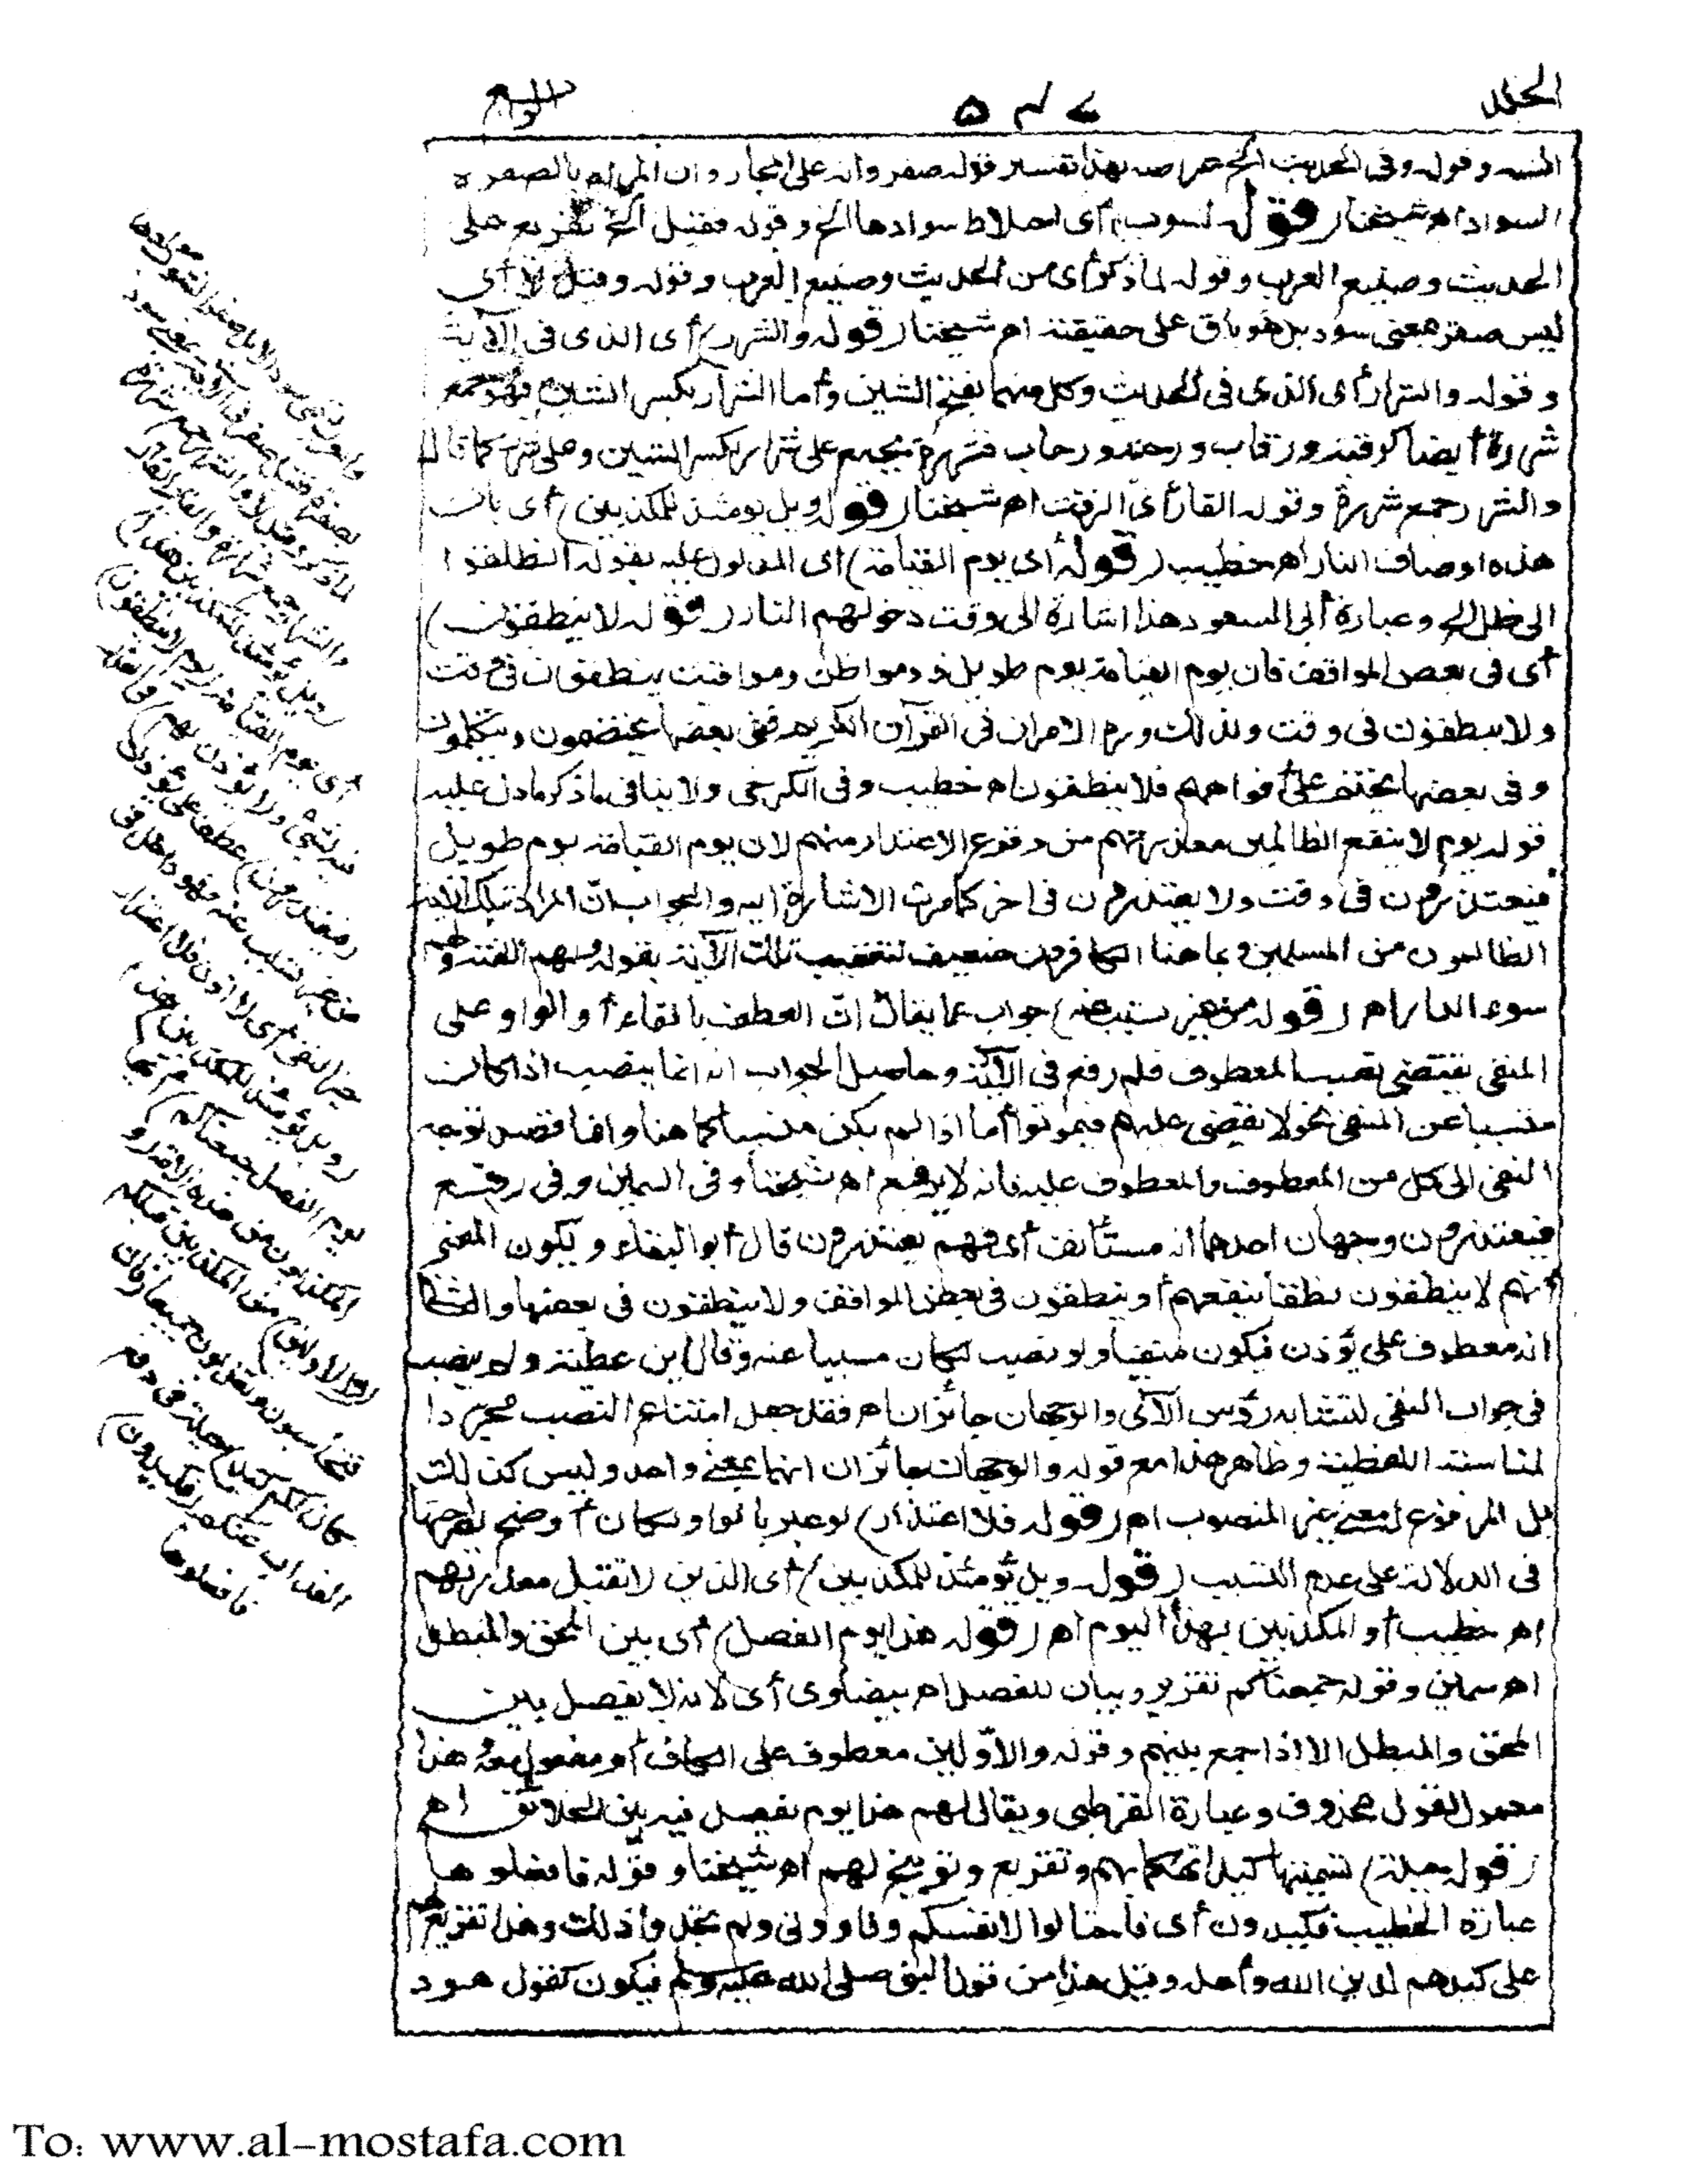 الجلد
٥٤٧
الرابع
الشبه وقوله وفى الحديث الخ غرضه بهذا تفسير قوله صفر وانه على المجاز وان المراد بالصفرة
السواد اه شيخنا (قوله لشوب) أى اختلاط سوادها الخ وقوله فقيل الخ تفريع على
الحديث وصنيع العرب وقوله لما ذكر أى من الحديث وصنيع العرب وقوله وقيل لا أى
ليس صفر بمعنى سود بل هو باق على حقيقته اه شيخنا (قوله والشرر) أى الذى فى الآية
وقوله والشرار أى الذى فى الحديث وكل منهما بفتح الشين وأما الشرار بكسر الشين فهو جمع
شررة أيضا كرقبة ورقاب ورحبة ورحاب فشررة تجمع على شرار بكسر الشين وعلى شرر كما قال
والشرر جمع شررة وقوله القار أى الزفت اه شيخنا (قوله ويل يومئذ للمكذبين) أى بأن
هذه اوصاف النار اه خطيب (قوله أى يوم القيامة) أى المدلول عليه بقوله انطلقوا
الى ظل الخ وعبارة أبى السعود هذا اشارة الى وقت دخولهم النار (قوله لا ينطقون)
أى فى بعض المواقف فان يوم القيامة يوم طويل ذو مواطن ومواقيت ينطقون فى وقت
ولا ينطقون فى وقت ولذلك ورد الامران فى القرآن الكريم ففى بعضها يختصمون ويتكلمون
وفى بعضها يختم على أفواههم فلا ينطقون اه خطيب وفى الكرخى ولا ينافى ما ذكر ما دل عليه
قوله يوم لا ينفع الظالمين معذرتهم من وقوع الاعتذار منهم لان يوم القيامة يوم طويل
فيعتذرون فى وقت ولا يعتذرون فى اخر كما مرت الاشارة اليه والجواب بأن المراد بتلك الآية
الظالمون من المسلمين وبما هنا الكافرون ضعيف لتعقيب تلك الآية بقوله ولهم اللعنة ولهم
سوء الدار اه (قوله من غير تسبب عنه) جواب عما يقال ان العطف بالفاء أو الواو على
المنفى يقتضى نصب المعطوف فلم رفع فى الآية وحاصل الجواب انه انما ينصب اذا كان
متسببا عن المنفى نحو لا يقضى عليهم فيموتوا أما اذا لم يكن متسببا كما هنا وانما قصد توجه
النفى الى كل من المعطوف والمعطوف عليه فانه لا يرفع اه شيخنا وفى السمين وفى رفع
فيعتذرون وجهان احدهما انه مستأنف أى فهم يعتذرون قال أبو البقاء ويكون المعنى
أنهم لا ينطقون نطقا ينفعهم أو ينطقون فى بعض المواقف ولا ينطقون فى بعضها والثانى
انه معطوف على يؤذن فيكون منفيا ولو نصب لكان مسببا عنه وقال ابن عطية ولم ينصب
فى جواب النفى لتشابه رؤس الآى والوجهان جائزان اه فقد جعل امتناع النصب مجردا
لمناسبة اللفظية وظاهر هذا مع قوله والوجهان جائزان انهما بمعنى واحد وليس كذلك
بل المرفوع له معنى غير المنصوب اه (قوله فلا اعتذار) لو عبر بالواو لكان أوضح لصراحتها
فى الدلالة على عدم التسبب (قوله ويل يومئذ للمكذبين) أى الذين لا تقبل معذرتهم
اه خطيب أو المكذبين بهذا اليوم اه (قوله هذا يوم الفصل) أى بين المحق والمبطل
اه سمين وقوله جمعناكم تقرير وبيان للفصل اه بيضاوى أى لانه لا يفصل بين
المحق والمبطل الا اذا جمع بينهم وقوله والاولين معطوف على الكاف أو مفعول معه وهذا
معمول لقول محذوف وعبارة القرطبى ويقال لهم هذا يوم يفصل فيه بين الخلائق اه
(قوله حيلة) تسميتها كيدا تهكما بهم وتقريع وتوبيخ لهم اه شيخنا وقوله فافعلوها
عبارة الخطيب فكيدون أى فاحتالوا لانفسكم وقاوونى ولم تجدوا ذلك وهذا تقريع لهم
على كيدهم لدين الله وأهله وقيل هذا من قول النبى صلى الله عليه وسلم فيكون كقول هود
(ويل يومئذ للمكذبين هذا)
أى يوم القيامة (يوم لا ينطقون)
فيه بشئ (ولا يؤذن لهم) فى العذر
(فيعتذرون) عطف على يؤذن
من غير تسبب عنه فهو داخل فى
حيز النفى أى لا اذن فلا اعتذار
(ويل يومئذ للمكذبين هذا
يوم الفصل جمعناكم) أيها
المكذبون من هذه الامة
(والاولين) من المكذبين قبلكم
فتحاسبون وتعذبون جميعا (فان
كان لكم كيد) حيلة فى دفع
العذاب عنكم (فكيدون)
فافعلوها
To: www.al-mostafa.com